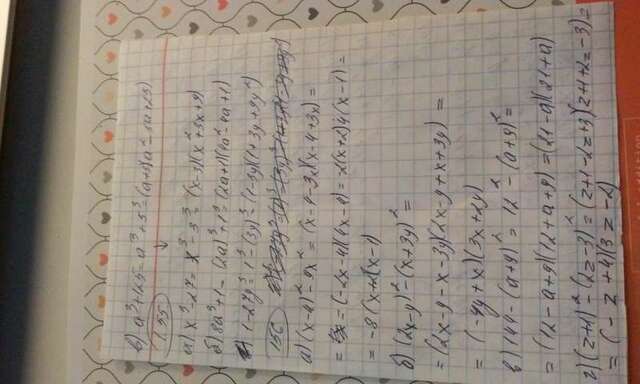 в) a³+125=a³+5³=(a+5)(a²-5a+25)
155
а) x³-27=x³-3³=(x-3)(x²+3x+9)
б) 8a³+1=(2a)³+1³=(2a+1)(4a²-4a+1)
1-27y³=1³-(3y)³=(1-3y)(1+3y+9y²)
156
а) (x-4)²-9x²=(x-4-3x)(x-4+3x)=
=(-2x-4)(4x-4)=-2(x+2)4(x-1)=
=-8(x+2)(x-1)
б) (2x-y)²-(x+3y)²=
=(2x-y-x-3y)(2x-y+x+3y)=
=(-4y+x)(3x+2y)
в) 144-(a+9)²=12²-(a+9)²=
=(12-a+9)(12+a+9)=(21-a)(21+a)
г) (z+1)²-(2z-3)²=(z+1-2z+3)(z+1+2z-3)=
=(-z+4)(3z-2)